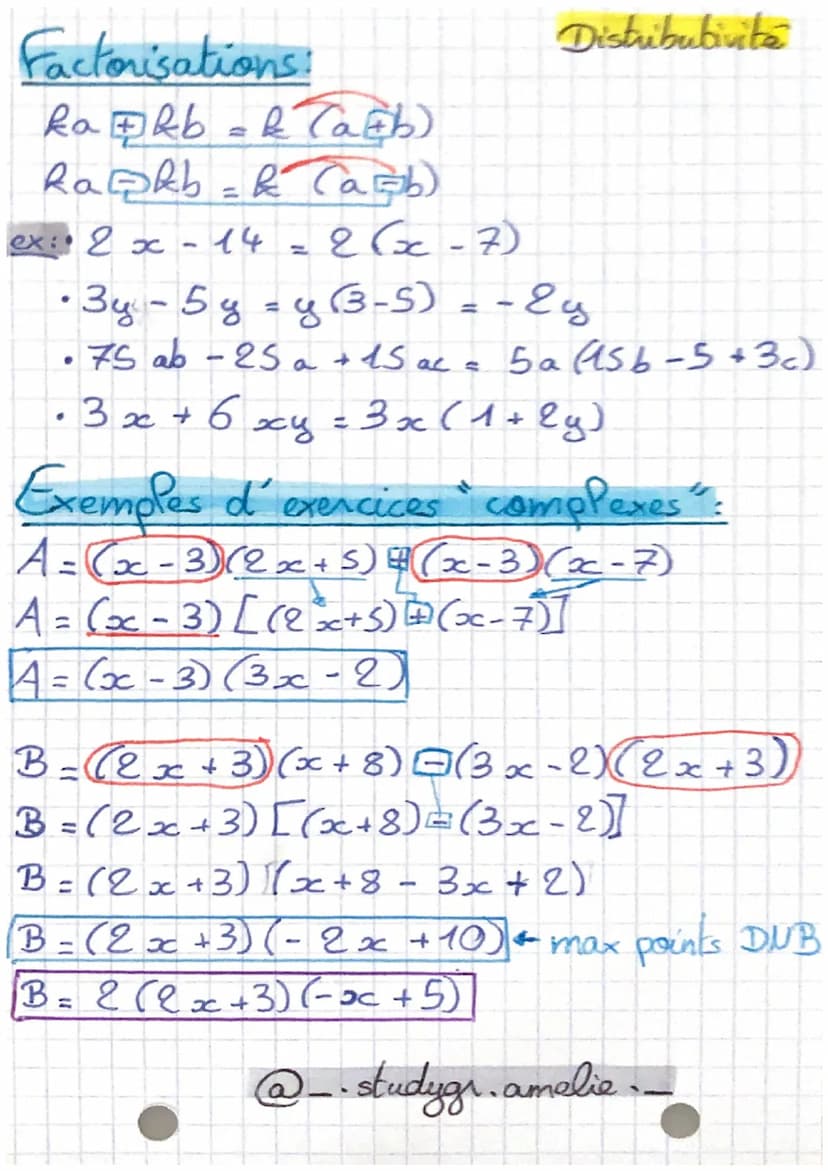 Distributivité
Factorisations:
ka + kb = k (a+b)
ka - kb = k (a-b)
ex: • 2x - 14 = 2(x - 7)
• 3y - 5y = y(3-5) = -2y
• 75ab - 25a + 15ac = 5a(15b - 5 + 3c)
• 3x + 6xy = 3x(1 + 2y)
Exemples d'exercices "complexes":
A = (x - 3)(2x + 5) + (x - 3)(x - 7)
A = (x - 3)[(2x+5) + (x - 7)]
A = (x - 3)(3x - 2)
B = (2x + 3)(x + 8) - (3x - 2)(2x + 3)
B = (2x + 3)[(x+8) - (3x - 2)]
B = (2x + 3)(x + 8 - 3x + 2)
B = (2x + 3)(-2x + 10) ← max points DNB
B = 2(2x+3)(-x + 5)
@_.studygr.amelie._